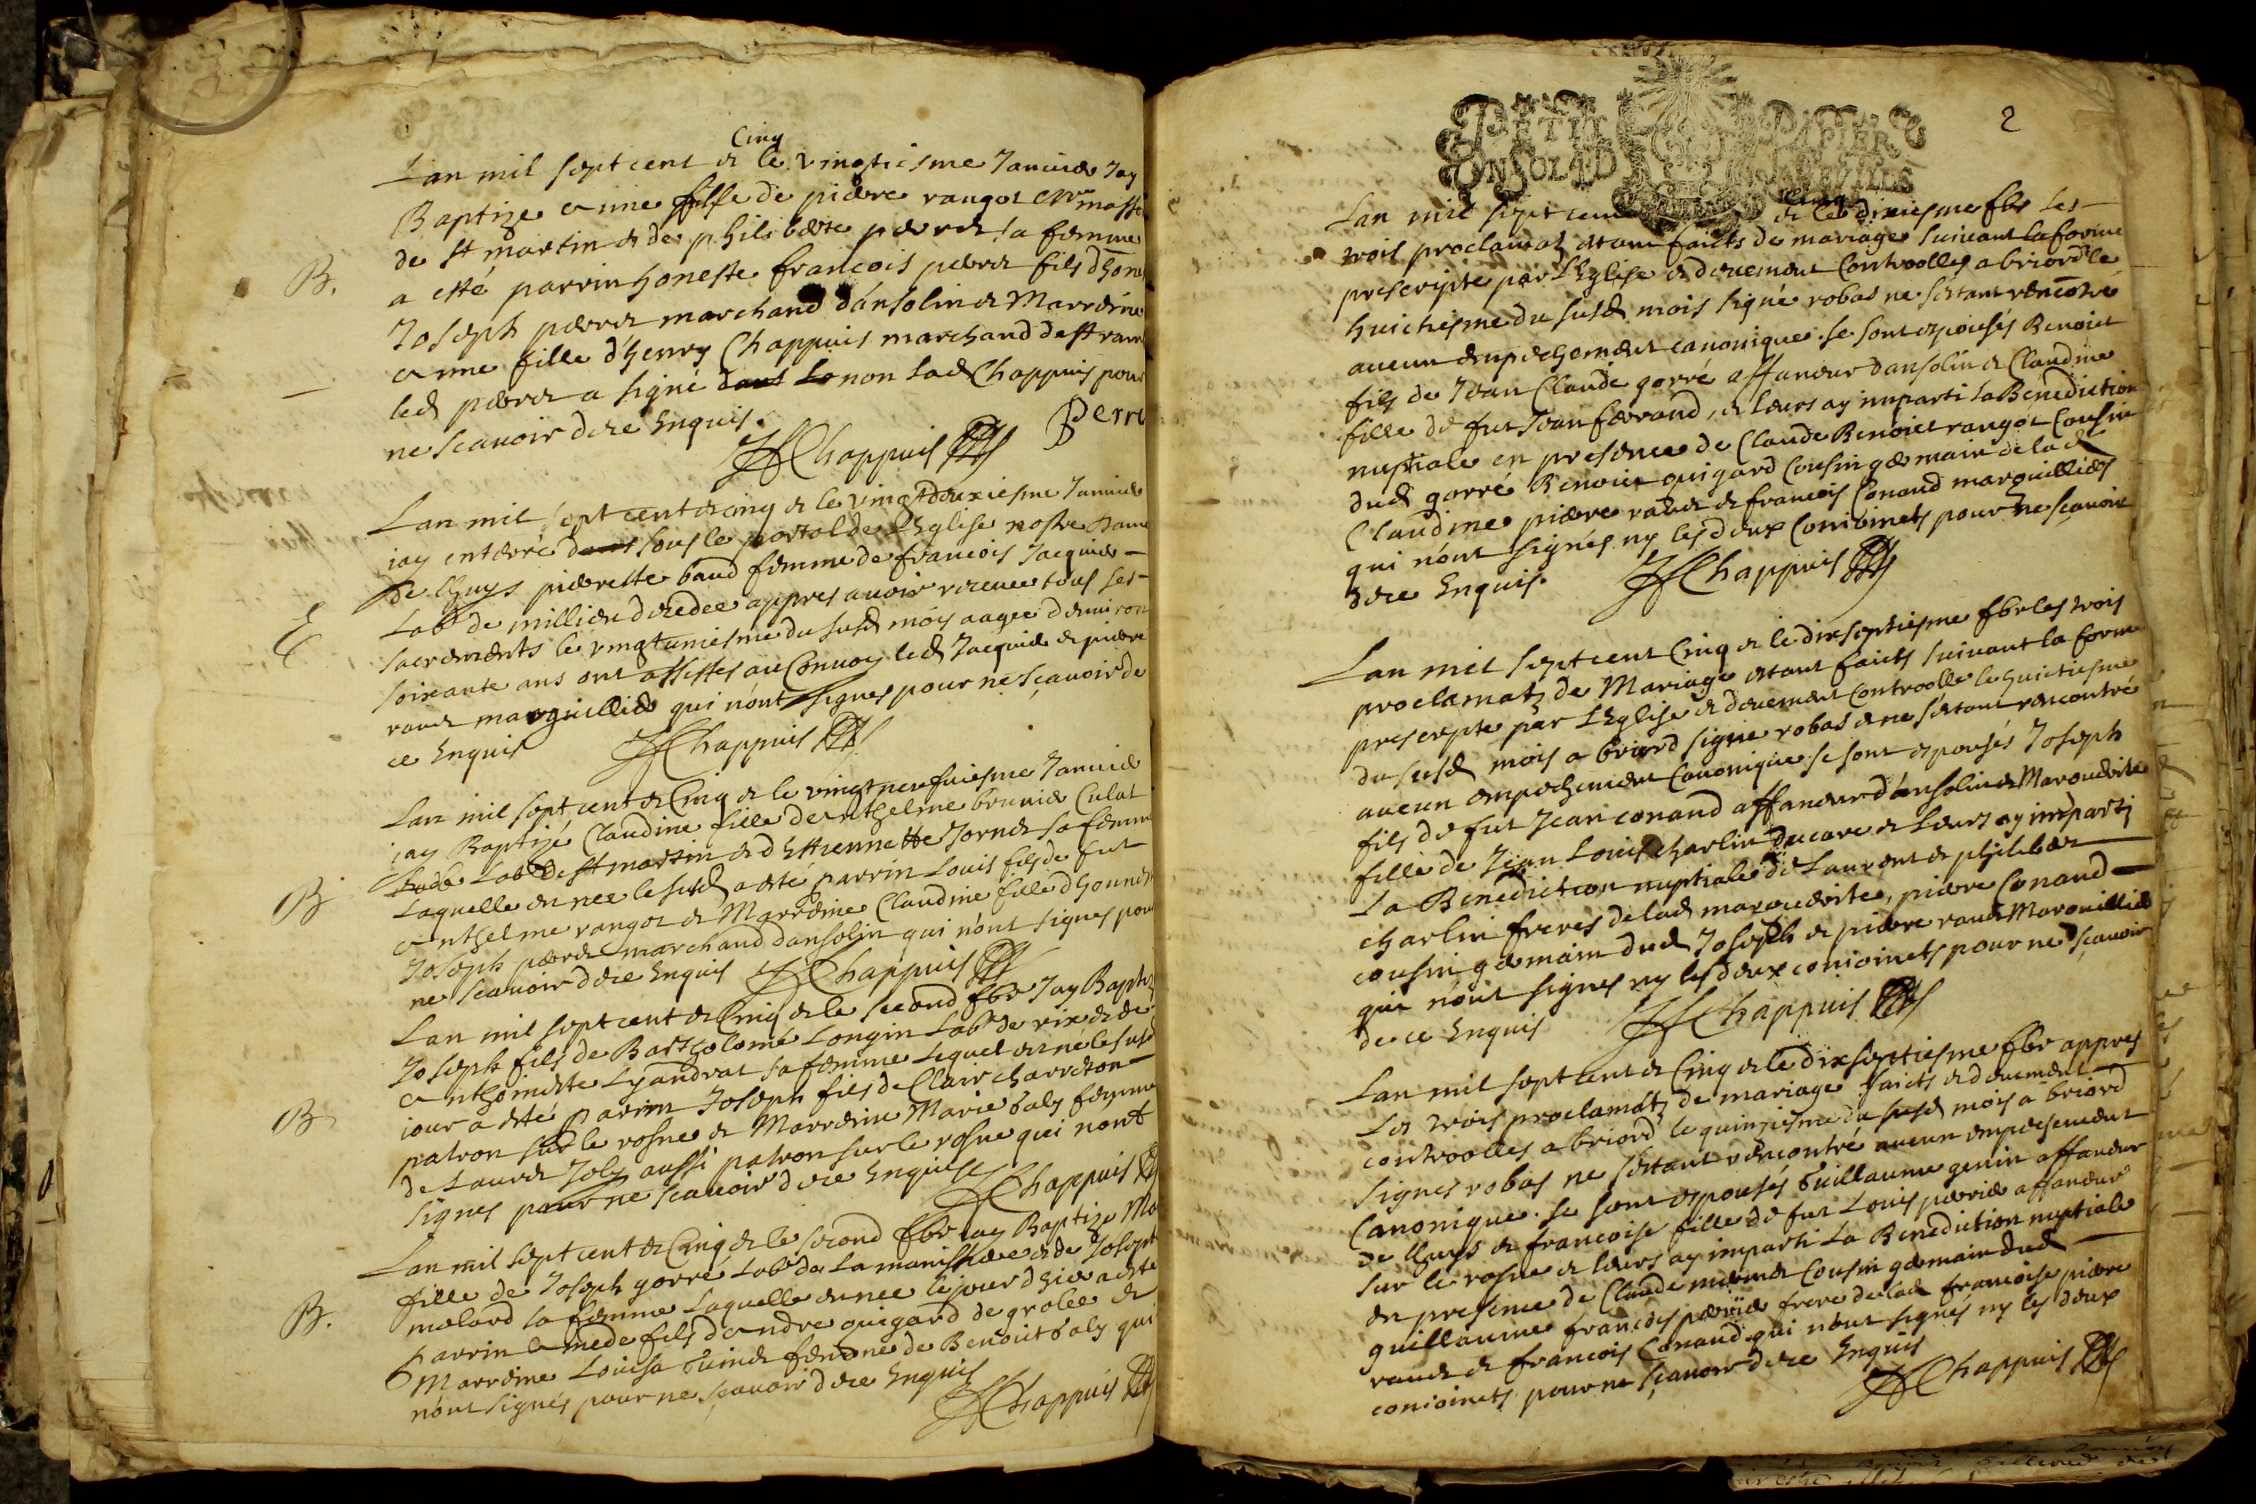 Cinq
Lan mil sept cent & le vingtiesme Janvier Jay
Baptize Anne fille de pierre rangot
de st martin & de philiberte perret sa femme
B.
a esté parrin honeste francois perret fils dhon
Joseph perret marchand dansolin & Marreine
Anne fille d'henry Chappuis marchand de st
led perret a signé non lad Chappuis pour
ne scavoir de ce Enquis.
Chappuis
Perr
Lan mil sept cent & cinq & le vingtdeuxiesme Janvier
jay enterré sous le portal de lEglise nostre dame
de lhuys pierrette baud femme de francois Jacquier
E
Labr de millieu decedee appres avoir receue tous ses
sacrements le vingtuniesme du susd mois aagee denviron
soixante ans ont assistes au Convoy led Jacquier & pierre
ravet marguillier qui nont signes pour ne scavoir de
ce Enquis
Chappuis
Lan mil sept cent & Cinq & le vingtneufuiesme Janvier
jay Baptizé Claudine fille de Anthelme brunier Culat
Labr de st martin & d'Estiennette Jornet sa femme
B
Laquelle est nee le susd a este parrin Louis fils de fut
Anthelme rangot & Marreine Claudine fille dhonnest
Joseph perret marchand dansolin qui n'ont signes pour
ne scavoir de ce Enquis
Chappuis
Lan mil sept cent & Cinq & le second fbr Jay Baptizé
Joseph fils de Bartholomé Longin Labr de rix & de
Anthoinette Lyandrat sa femme Lequel est né le susd
B
jour a esté parrin Joseph fils de Clair charreton
patron sur le rosne & Marreine Marie baly femme
de Laurent Joly aussi patron sur le rosne qui nont
signes pour ne scavoir de ce Enquis
Chappuis
Lan mil sept cent & Cinq & le second fbr jay Baptize Ma
fille de Joseph gorré Labr de La manissiere & de Josept
B.
molard sa femme Laquelle est nee le jour dhier a este
parrin Amede fils de Andre quigard de grolee &
Marreine Louisa Guinet femme de Benoit baly qui
n'ont signés pour ne scavoir de ce Enquis
Chappuis
2
PETIT PAPIER
UN SOL 4 D
Cinq
Lan mil sept cent & le dixiesme fbr les
trois proclamatz estant faicts de mariage suivant la forme
prescripte par l'Eglise & deuement Controolles a briord le
huictiesme du susd mois signé robas ne sestant rencotré
aucun empechement canonique. se sont espousés Benoict
fils de Jean Claude gorré affaneur dansolin & Claudine
fille de fut Jean ferrand, & Leurs ay imparti la Benediction
nuptiale en presence de Claude Benoict rangot Cousin
dud gorré Benoict quigard Cousin germain de lad
Claudine pierre ravet & francois Conand marguilliers
qui n'ont signés ny les deux Conioincts pour ne scavoir
de ce Enquis.
Chappuis
Lan mil sept cent Cinq & le dixseptiesme fbr les trois
proclamatz de Mariage estant faicts suivant la forme
prescripte par l'Eglise & deuement Controolle le huictiesme
du susd mois a briord signe robas & ne sestant rencontré
aucun empechement Canonique se sont espousés Joseph
fils de fut Jean conand affaneur d'ansolin & Marguerite
fille de Jean Louis charlin ducare & Leurs ay imparti
La Benediction nuptiale de Laurent & philiber
charlin freres de lad marguerite, pierre Conand
cousin germain dud Joseph & pierre ravet Marguillier
qui n'ont signes ny les deux conioincts pour ne scavoir
de ce Enquis
Chappuis
Lan mil sept cent & Cinq & le dixseptiesme fbr appres
Les trois proclamatz de mariage faicts & deuement
controolles a briord le quinziesme du susd mois a briord
signes robas ne sestant rencontré aucun empechement
Canonique. se sont espousés Guillaume genin affaneur
de lhuys & francoise fille de fut Louis perrier affaneur
sur le rosne & leurs ay imparti La Benediction nuptiale
en presence de Claude Cousin germain dud
guillaume francois perrier frere de lad francoise pierre
ravet & francois Conand qui n'ont signés ny les deux
conioincts pour ne scavoir de ce Enquis
Chappuis